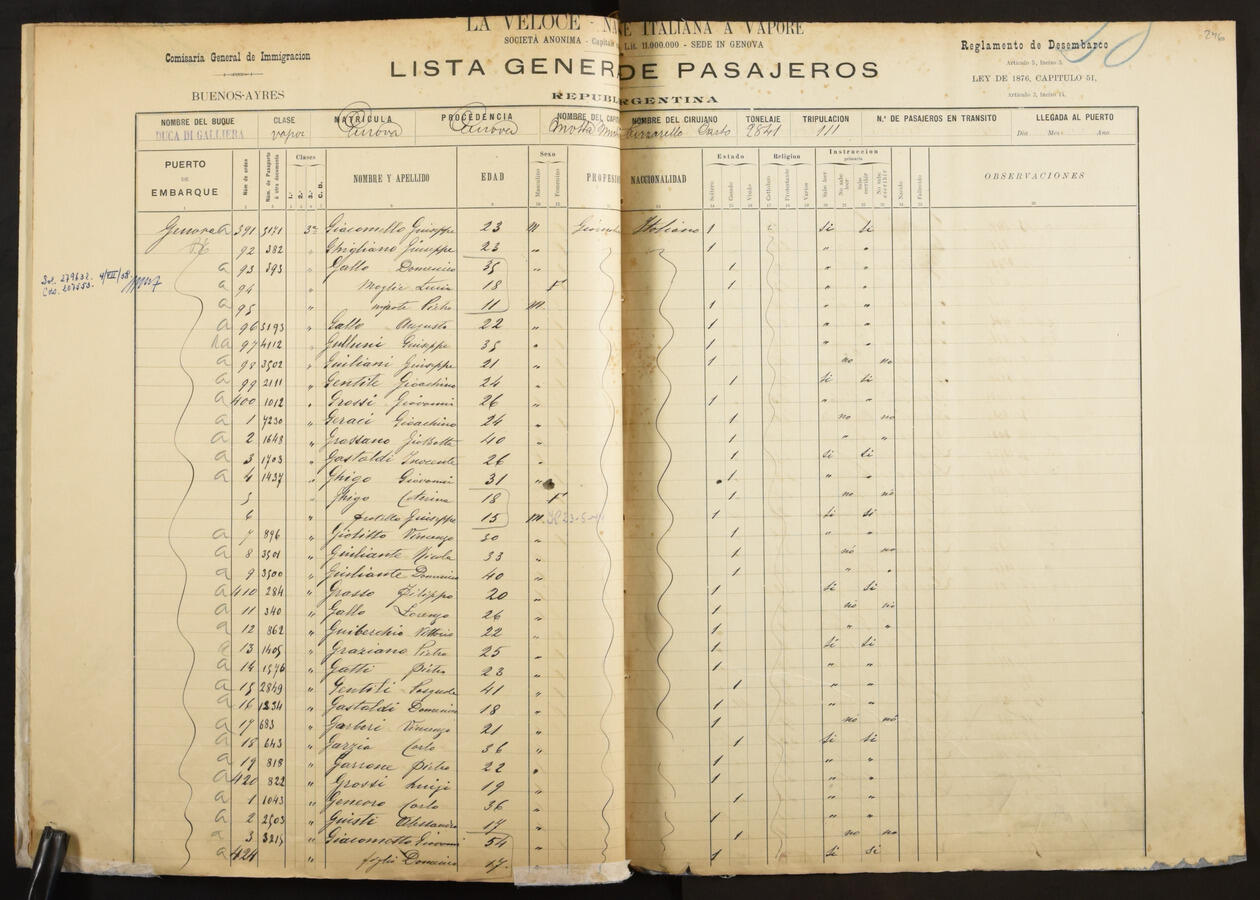 LA VELOCE - NA E ITALIANA A VAPORE
SOCIETÀ ANONIMA - Capitale Lit. 11.000.000 - SEDE IN GENOVA
Comisaría General de Immigracion
BUENOS-AYRES
LISTA GENER DE PASAJEROS
REPUBL RGENTINA
Reglamento de Desembarco
Articulo 5, Inciso 5
LEY DE 1876, CAPITULO 51,
Articulo 3, Inciso 14
246
NOMBRE DEL BUQUE CLASE MATRÍCULA PROCEDENCIA NOMBRE DEL CAPI NOMBRE DEL CIRUJANO TONELAJE TRIPULACION N.º DE PASAJEROS EN TRANSITO LLEGADA AL PUERTO
DUCA DI GALLIERA vapor Genova Genova Motta Carlo 2841 111 Dia Mes Ano
PUERTO DE EMBARQUE Núm de orden Núm. de Pasaporte ú otro documento Clases 1.ª 2.ª 3.ª C. B. NOMBRE Y APELLIDO EDAD Sexo Masculino Femenino PROFESIO NACCIONALIDAD Estado Soltero Casado Viudo Religion Católico Protestante Varios Instruccion primaria Sabe leer No sabe leer Sabe escribir No sabe escribir Nacido Fallecido OBSERVACIONES
Genova a 391 5171 3ª Giacometto Giuseppe 23 m Italiano 1 si si
92 382 " Ghigliano Giuseppe 23 " 1 " "
a 93 393 " Gallo Domenico 35 " 1 " "
a 94 " Moglie Lucia 18 F 1 " "
a 95 " nipote Pietro 11 m 1 " "
a 96 5193 " Gallo Augusto 22 " 1 " "
a 97 4112 " Giuseppe 35 " 1 " "
a 98 3502 " Giuliani Giuseppe 21 " 1 no no
a 99 2111 " Gentile Gioachino 24 " 1 si si
a 400 1012 " Grossi Giovanni 26 " 1 " "
a 1 7230 " Geraci Gioachino 24 " 1 no no
a 2 1648 " Grossano Giobatta 40 " 1 " "
a 3 1703 " Gastaldi Inocente 26 " 1 si si
a 4 1437 " Ghigo Giovanni 31 " 1 " "
5 " Ghigo Caterina 18 F 1 no no
6 " fratello Giuseppe 15 m 1 si si
a 7 896 " Giolitto Vincenzo 30 " 1 " "
a 8 3501 " Giuliante Nicola 33 " 1 no no
a 9 3500 " Giuliante Domenico 40 " 1 " "
a 410 284 " Grasso Filippo 20 " 1 si si
a 11 340 " Gallo Lorenzo 26 " 1 no no
a 12 862 " Guiberchio Vittorio 22 " 1 " "
a 13 1405 " Graziano Pietro 25 " 1 si si
a 14 1576 " Gatti Pietro 23 " 1 " "
a 15 2849 " Gentili Pasquale 41 " 1 " "
a 16 1234 " Gastaldi Domenico 18 " 1 " "
a 17 683 " Garberi Vincenzo 21 " 1 no no
a 18 643 " Garzia Carlo 36 " 1 si si
a 19 818 " Garrone Pietro 22 " 1 " "
a 420 822 " Grossi Luigi 19 " 1 " "
a 1 1043 " Genoero Carlo 36 " 1 " "
a 2 2503 " Giusti Alessandro 17 " 1 " "
a 3 3215 " Giacometto Giovanni 54 " 1 no no
a 424 " figlio Domenico 17 " 1 si si